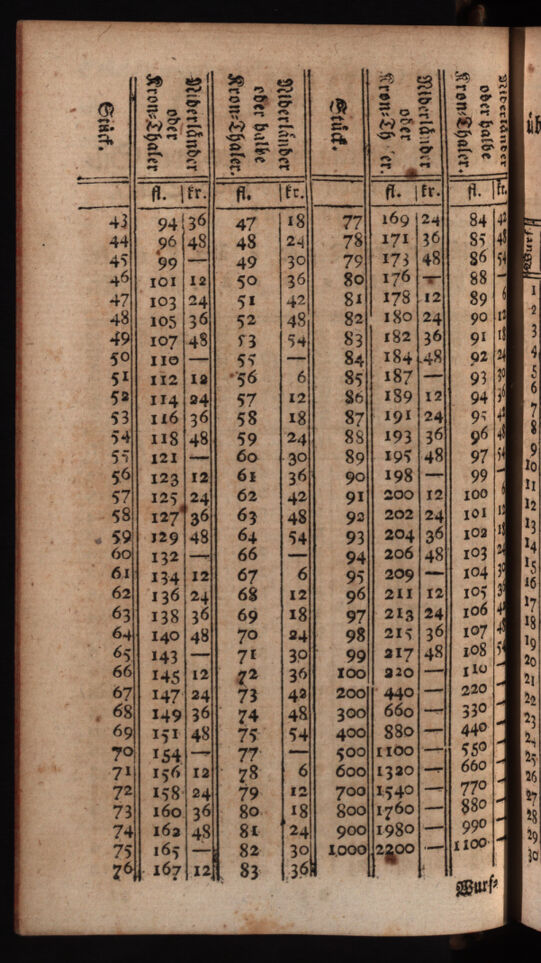 Stück. | Niderländer oder Kron-Thaler | Niderländer oder halbe Kron-Thaler. | Stück. | Niderländer oder Kron-Th er. | Niderländer oder halbe Kron-Thaler.
fl. | kr. | fl. | kr. | fl. | kr. | fl. | kr.
43 94 36 47 18 77 169 24 84 42
44 96 48 48 24 78 171 36 85 48
45 99 — 49 30 79 173 48 86 54
46 101 12 50 36 80 176 — 88 —
47 103 24 51 42 81 178 12 89 6
48 105 36 52 48 82 180 24 90 12
49 107 48 53 54 83 182 36 91 18
50 110 — 55 — 84 184 48 92 24
51 112 12 56 6 85 187 — 93 30
52 114 24 57 12 86 189 12 94 36
53 116 36 58 18 87 191 24 95 42
54 118 48 59 24 88 193 36 96 48
55 121 — 60 30 89 195 48 97 54
56 123 12 61 36 90 198 — 99 —
57 125 24 62 42 91 200 12 100 6
58 127 36 63 48 92 202 24 101 12
59 129 48 64 54 93 204 36 102 18
60 132 — 66 — 94 206 48 103 24
61 134 12 67 6 95 209 — 104 30
62 136 24 68 12 96 211 12 105 36
63 138 36 69 18 97 213 24 106 42
64 140 48 70 24 98 215 36 107 48
65 143 — 71 30 99 217 48 108 54
66 145 12 72 36 100 220 — 110 —
67 147 24 73 42 200 440 — 220 —
68 149 36 74 48 300 660 — 330 —
69 151 48 75 54 400 880 — 440 —
70 154 — 77 — 500 1100 — 550 —
71 156 12 78 6 600 1320 — 660 —
72 158 24 79 12 700 1540 — 770 —
73 160 36 80 18 800 1760 — 880 —
74 162 48 81 24 900 1980 — 990 —
75 165 — 82 30 1000 2200 — 1100 —
76 167 12 83 36
Wurf-
üb
Wurf
1
2
3
4
5
6
7
8
9
10
11
12
13
14
15
16
17
18
19
20
21
22
23
24
25
26
27
28
29
30